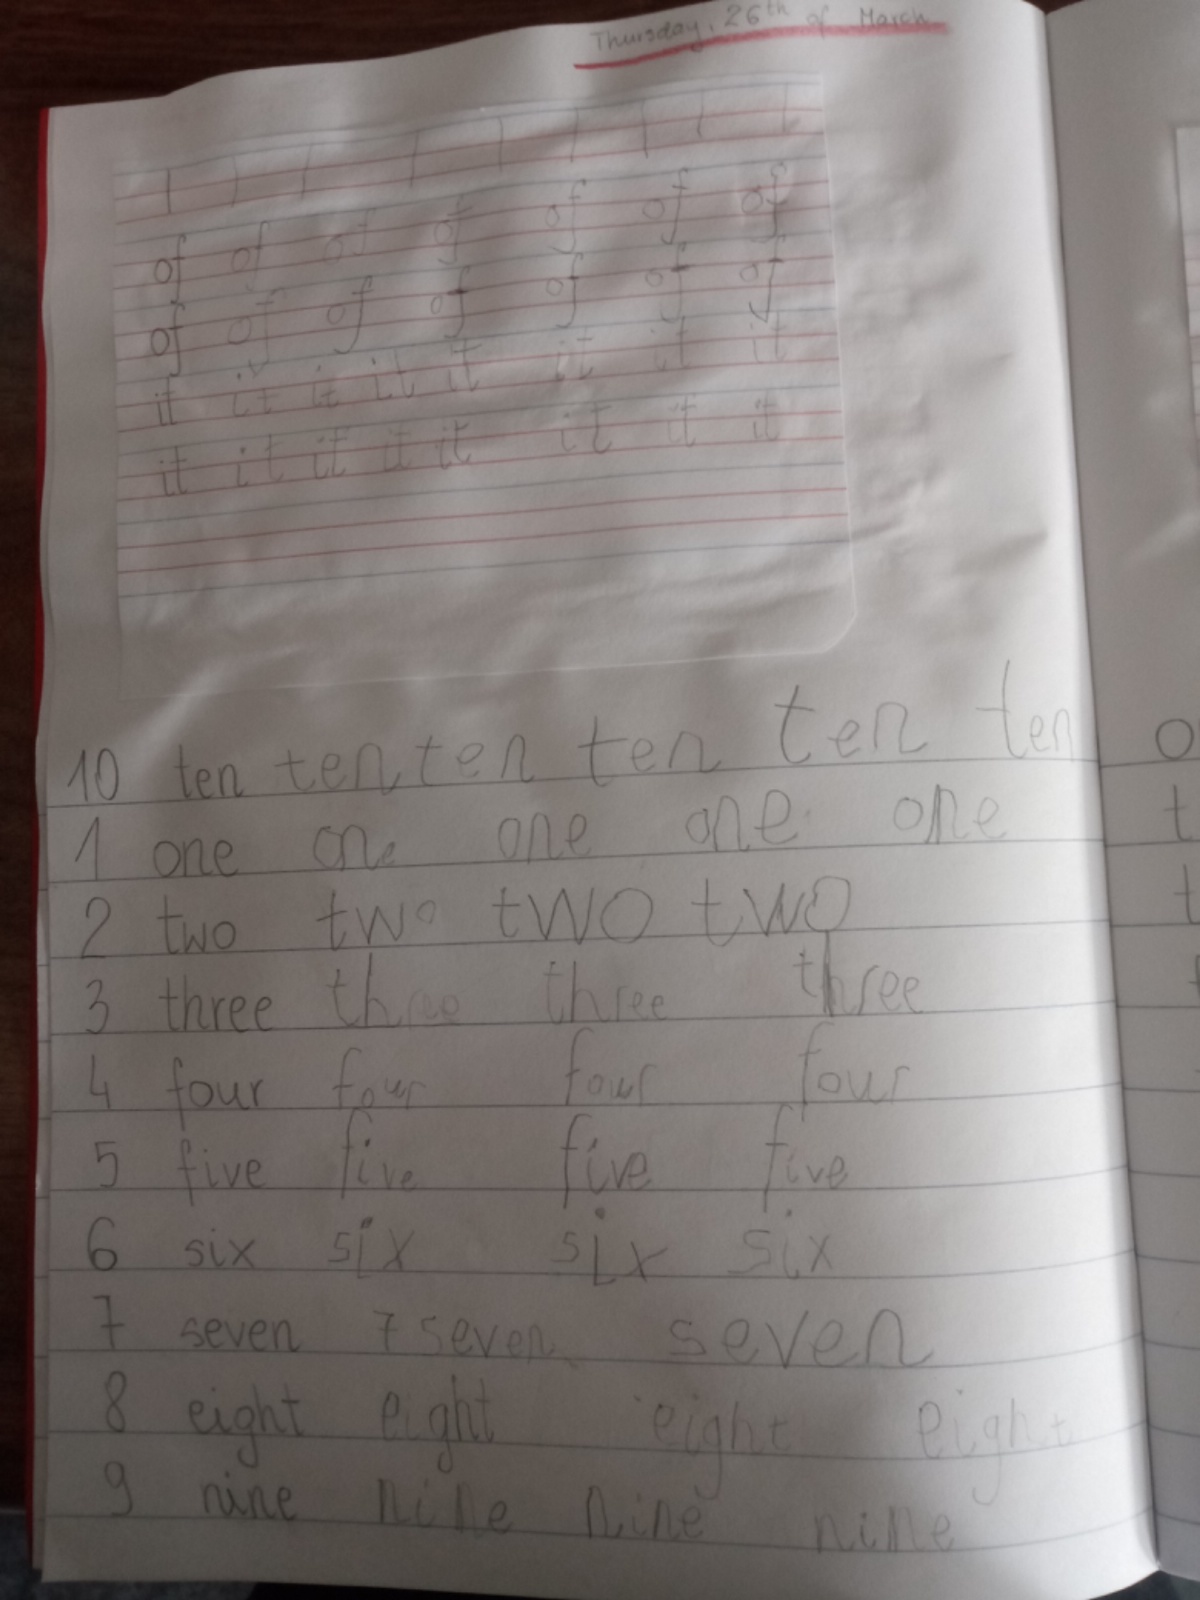 Thursday, 26th of March
| | | | | | | | |
of of of of of of of
of of of of of of of
it it it it it it it it
it it it it it it it it
10 ten ten ten ten ten ten
1 one one one one one
2 two two two two
3 three three three three
4 four four four four
5 five five five five
6 six six six six
7 seven 7 seven seven
8 eight eight eight eight
9 nine nine nine nine